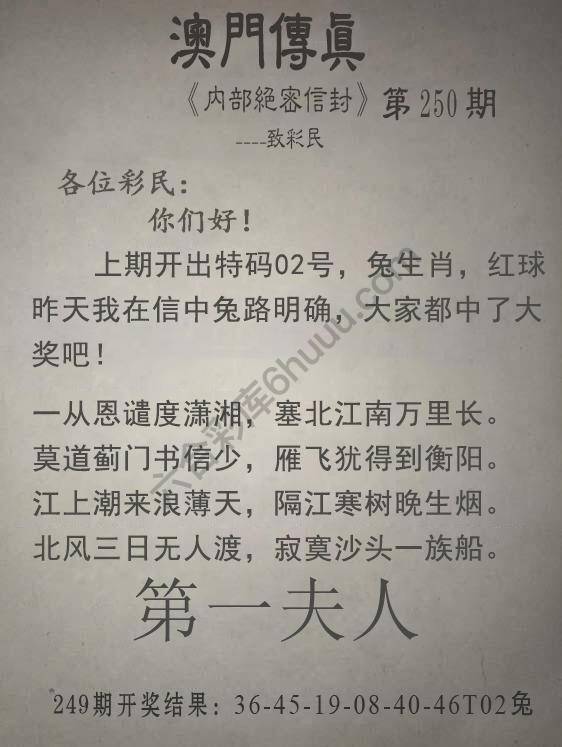 澳門傳眞
《内部絕密信封》第250期
----致彩民
各位彩民：
你们好！
上期开出特码02号，兔生肖，红球
昨天我在信中兔路明确，大家都中了大
奖吧！
一从恩谴度潇湘，塞北江南万里长。
莫道蓟门书信少，雁飞犹得到衡阳。
江上潮来浪薄天，隔江寒树晚生烟。
北风三日无人渡，寂寞沙头一族船。
第一夫人
249期开奖结果：36-45-19-08-40-46T02兔
六合彩库6huuu.com